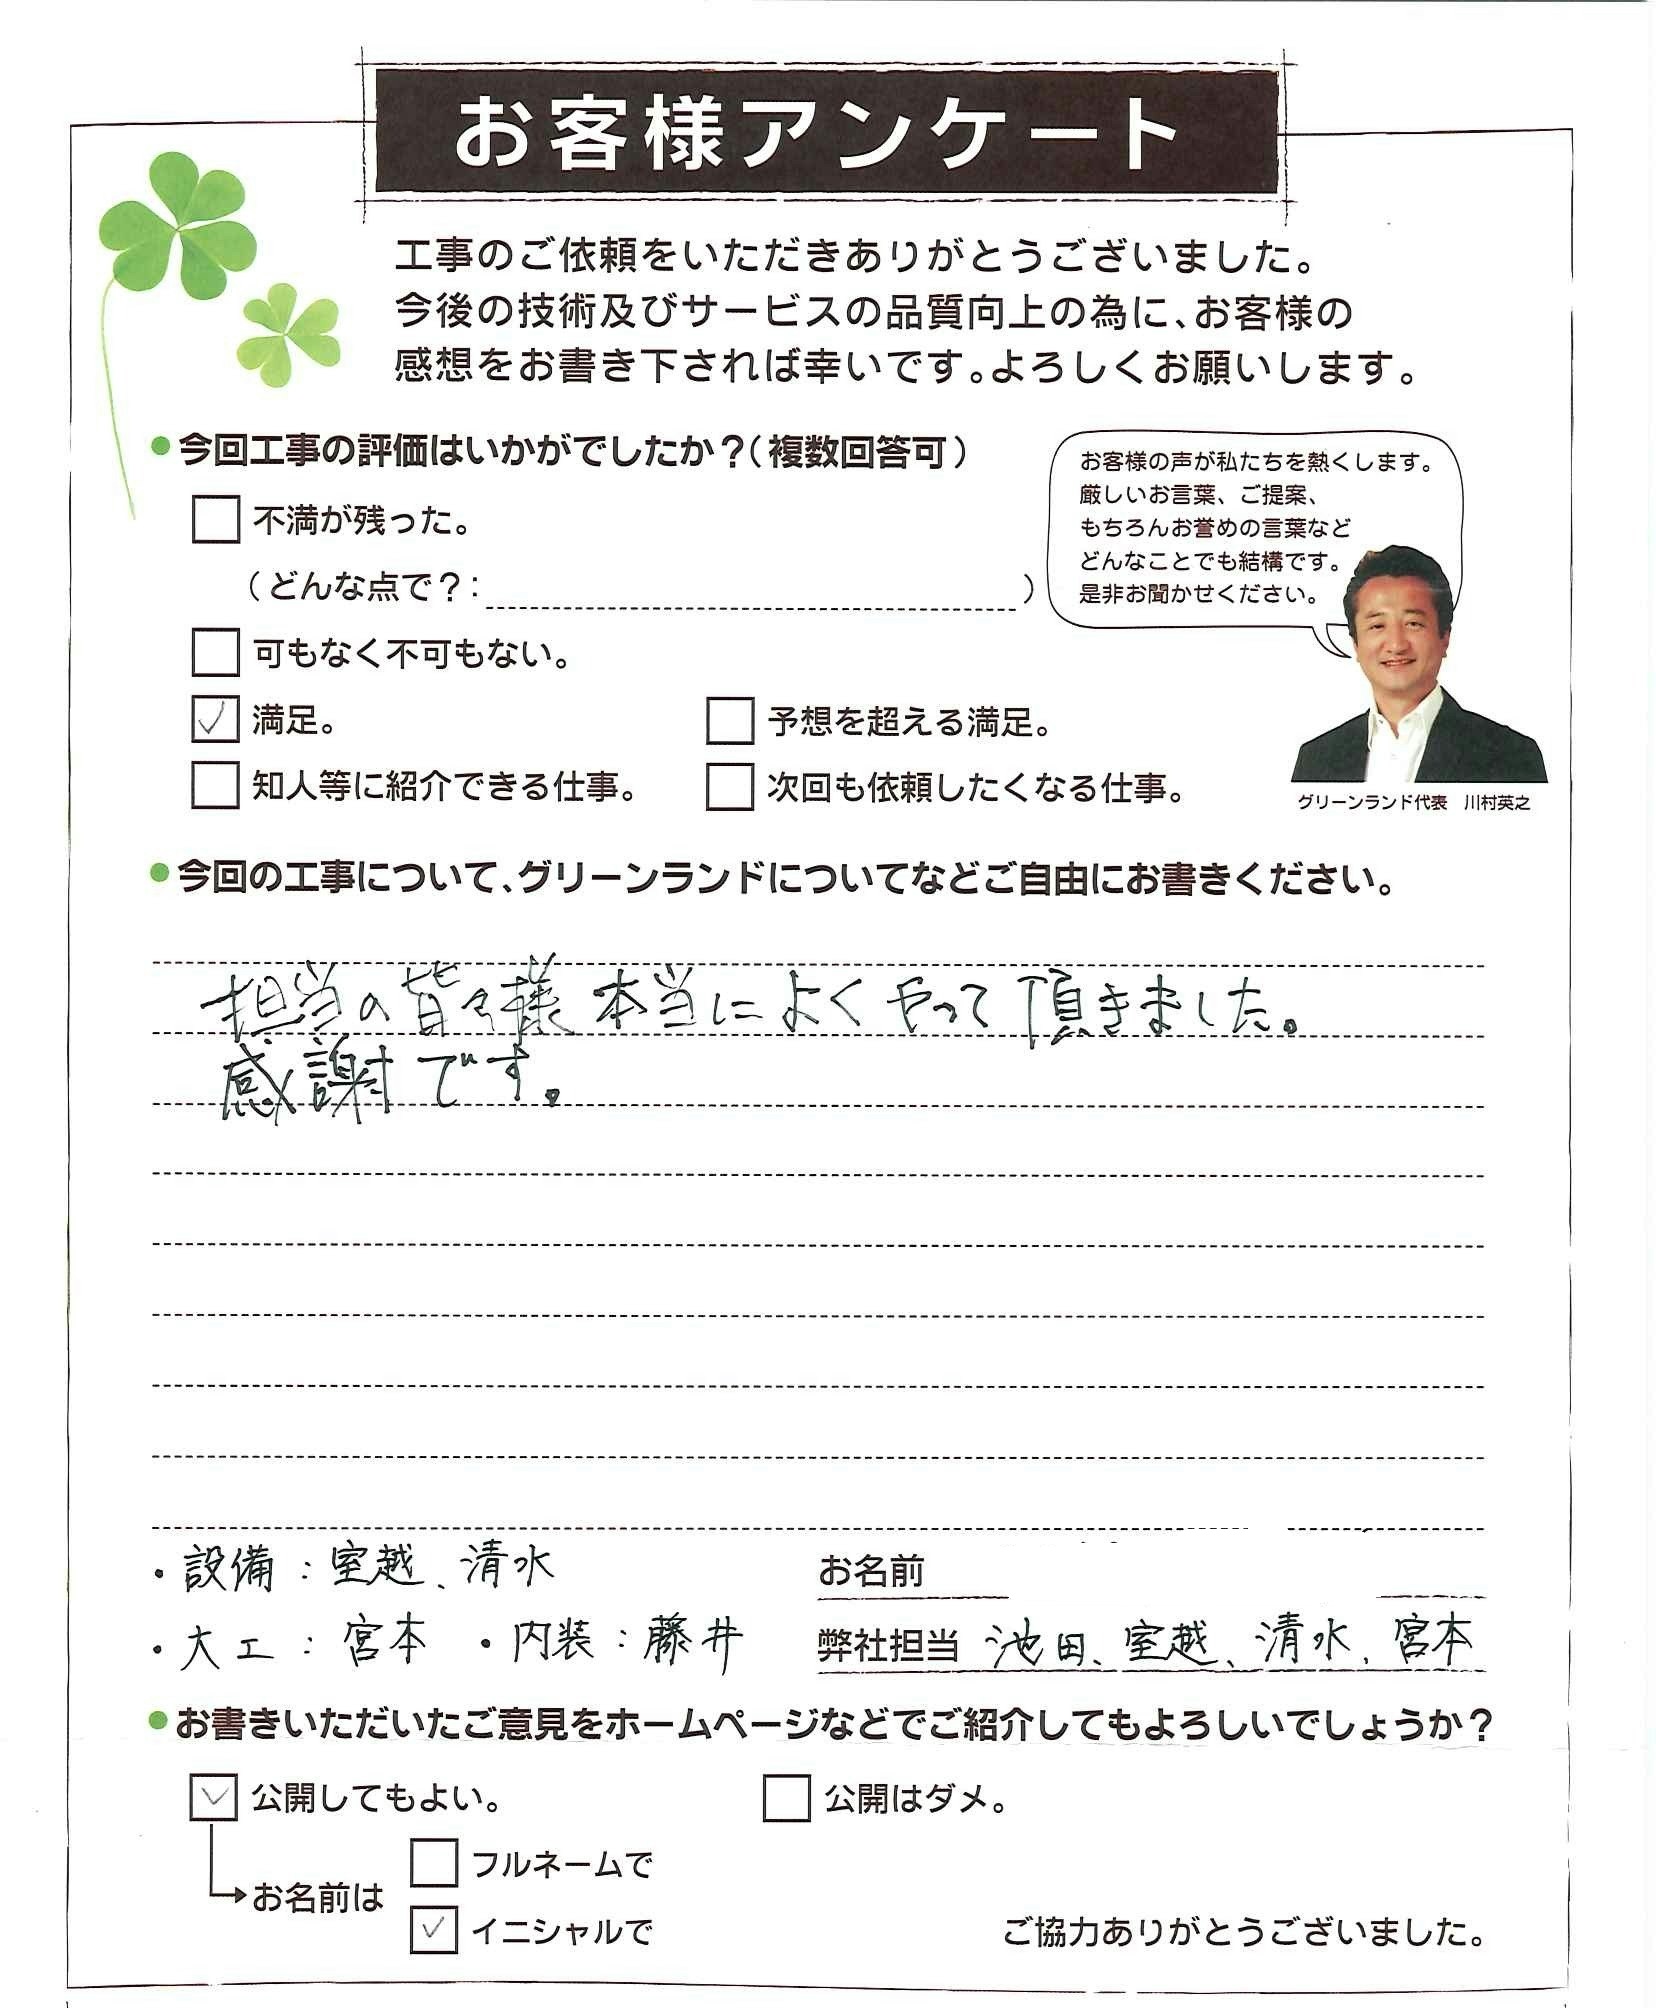 お客様アンケート
工事のご依頼をいただきありがとうございました。
今後の技術及びサービスの品質向上の為に、お客様の
感想をお書き下されば幸いです。よろしくお願いします。
●今回工事の評価はいかがでしたか？（複数回答可）
不満が残った。
（どんな点で？： ）
可もなく不可もない。
満足。 予想を超える満足。
知人等に紹介できる仕事。 次回も依頼したくなる仕事。
お客様の声が私たちを熱くします。
厳しいお言葉、ご提案、
もちろんお誉めの言葉など
どんなことでも結構です。
是非お聞かせください。
グリーンランド代表 川村英之
●今回の工事について、グリーンランドについてなどご自由にお書きください。
担当の皆々様本当によくやって頂きました。
感謝です。
・設備：室越、清水 お名前
・大工：宮本 ・内装：藤井 弊社担当 池田、室越、清水、宮本
●お書きいただいたご意見をホームページなどでご紹介してもよろしいでしょうか？
公開してもよい。 公開はダメ。
お名前は フルネームで
イニシャルで ご協力ありがとうございました。